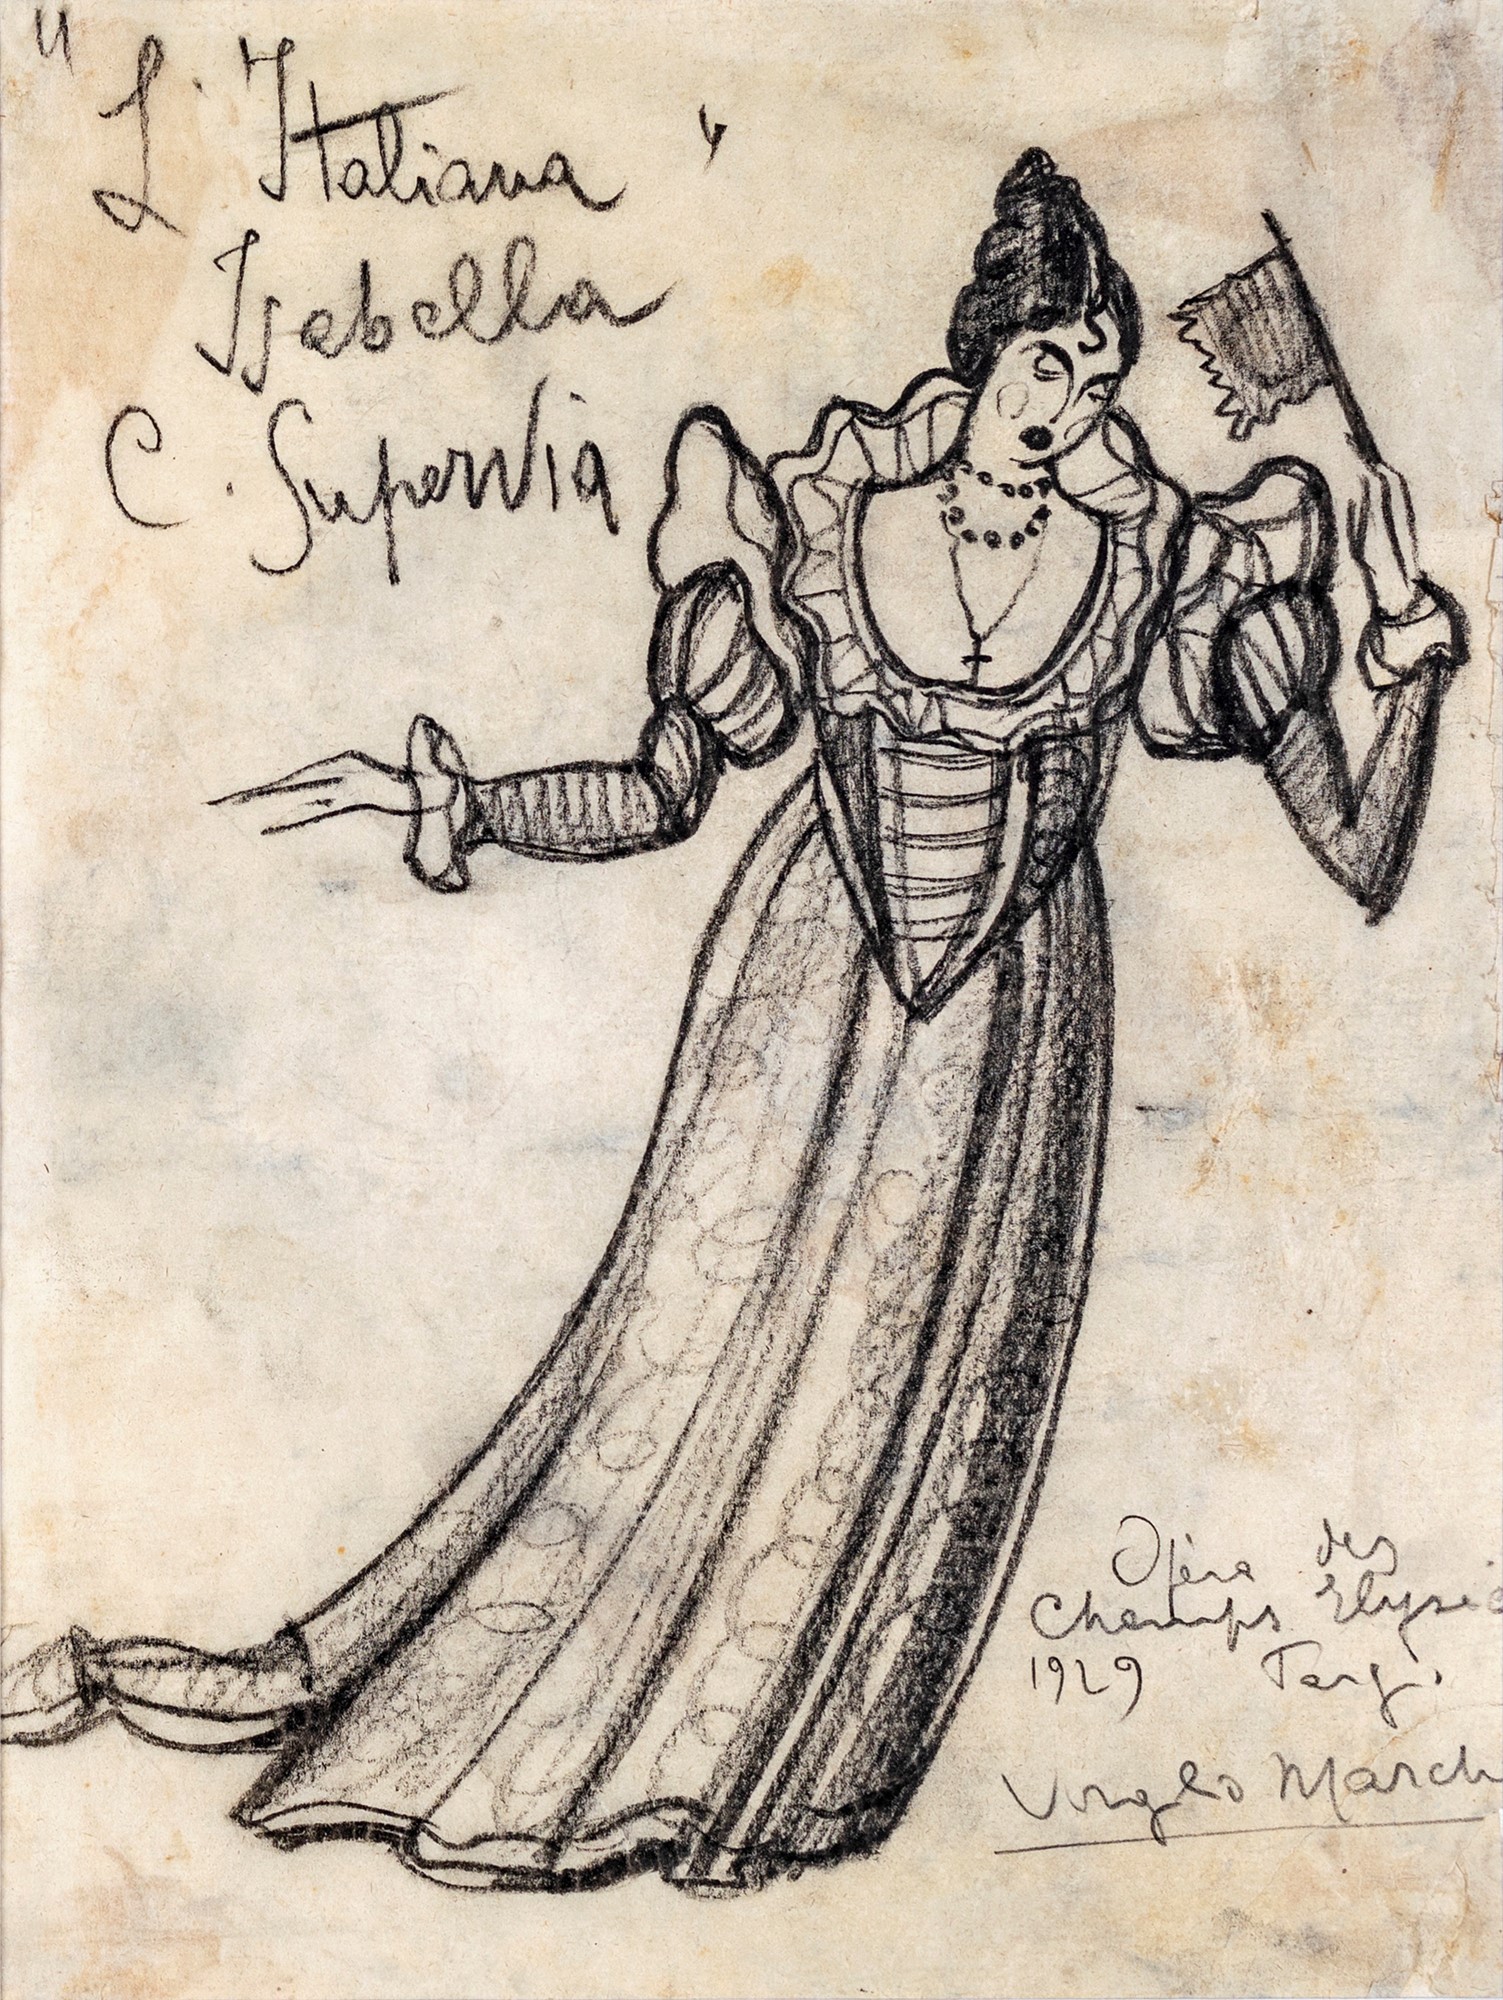 " L'Italiana "
Isabella
C. Supervia
Opéra des
Champs Elysé
1929 Parigi
Virgilio March